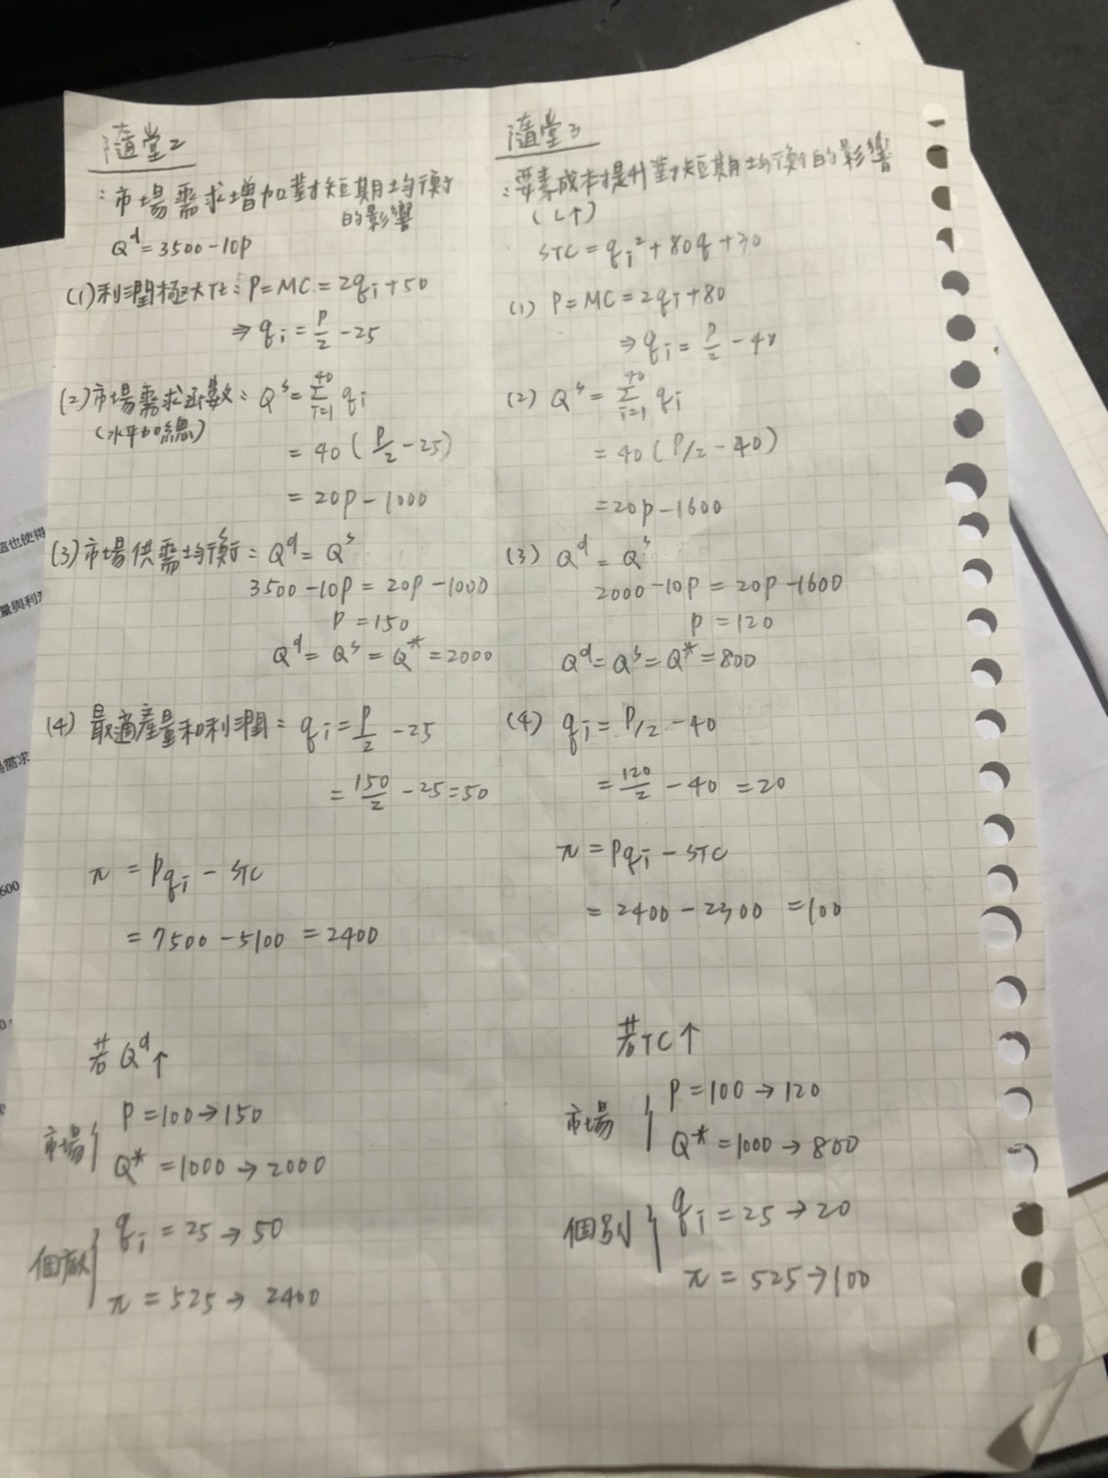 隨堂2
:市場需求增加對短期均衡
的影響
Q^d=3500-10P
(1)利潤極大化:P=MC=2qi+50
⇒qi=P/2-25
(2)市場需求函數:Q^s=Σ_{i=1}^{40} qi
(水平加總)
=40(P/2-25)
=20P-1000
(3)市場供需均衡:Q^d=Q^s
3500-10P=20P-1000
P=150
Q^d=Q^s=Q*=2000
(4)最適產量和利潤:qi=P/2-25
=150/2-25=50
π=Pqi-STC
=7500-5100=2400
若Q^d↑
市場{P=100→150
Q*=1000→2000
個廠{qi=25→50
π=525→2400
隨堂3
:要素成本提升對短期均衡的影響
(L↑)
STC=qi²+80q+
(1) P=MC=2qi+80
⇒qi=P/2-40
(2) Q^s=Σ_{i=1}^{40} qi
=40(P/2-40)
=20P-1600
(3) Q^d=Q^s
2000-10P=20P-1600
P=120
Q^d=Q^s=Q*=800
(4) qi=P/2-40
=120/2-40=20
π=Pqi-STC
=2400-2300=100
若TC↑
市場{P=100→120
Q*=1000→800
個別{qi=25→20
π=525→100
這也使得
量與利
場需求
600